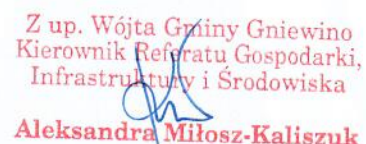 Z up. Wójta Gminy Gniewino
Kierownik Referatu Gospodarki,
Infrastruktury i Środowiska
Aleksandra Miłosz-Kaliszuk